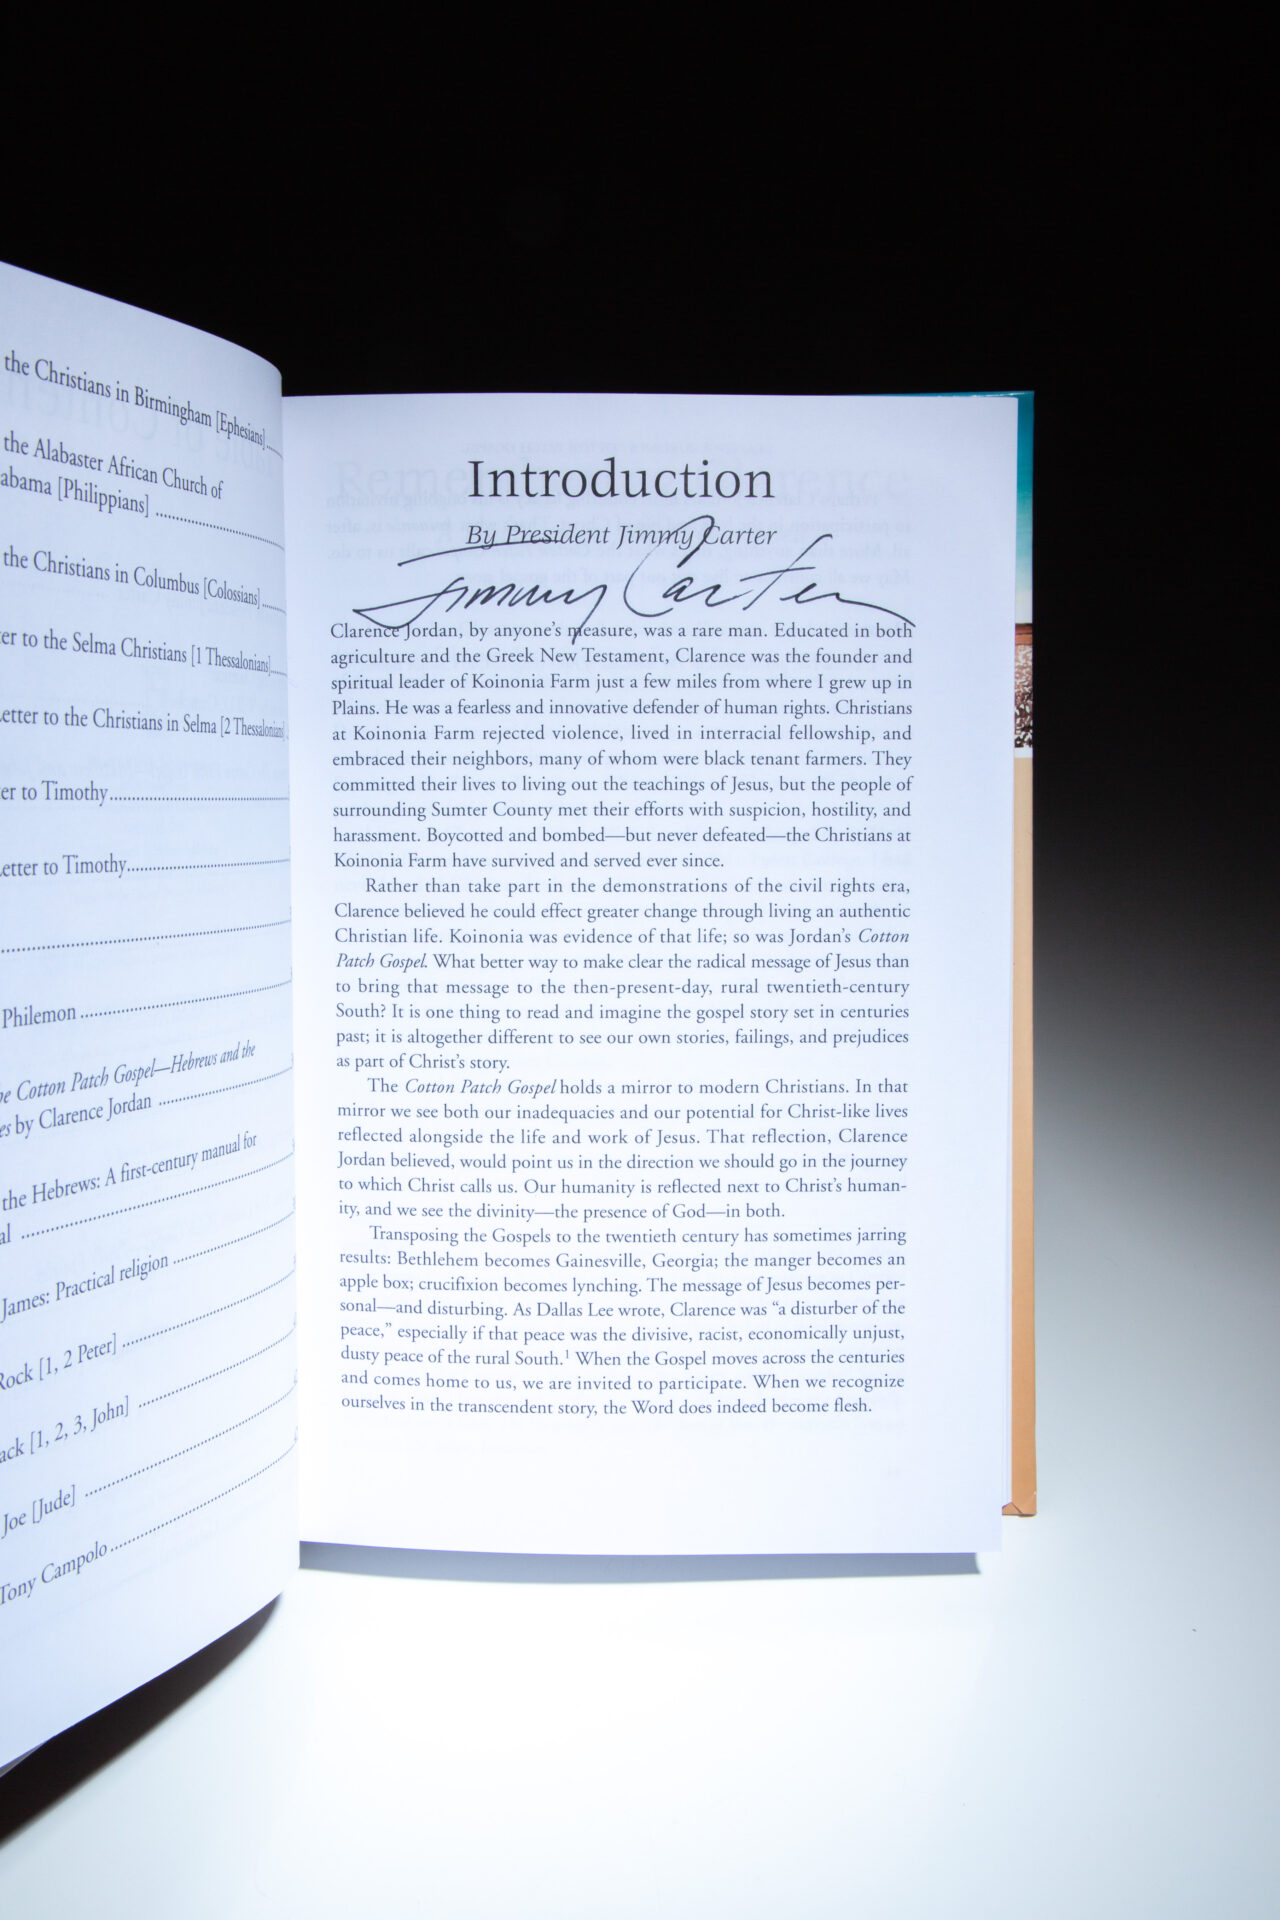 the Christians in Birmingham [Ephesians]
the Alabaster African Church of
abama [Philippians]
the Christians in Columbus [Colossians]
er to the Selma Christians [1 Thessalonians]
etter to the Christians in Selma [2 Thessalonians]
er to Timothy
etter to Timothy
Philemon
he Cotton Patch Gospel—Hebrews and the
es by Clarence Jordan
the Hebrews: A first-century manual for
al
James: Practical religion
Rock [1, 2 Peter]
ack [1, 2, 3, John]
Joe [Jude]
Tony Campolo
Introduction
By President Jimmy Carter
Jimmy Carter
Clarence Jordan, by anyone's measure, was a rare man. Educated in both
agriculture and the Greek New Testament, Clarence was the founder and
spiritual leader of Koinonia Farm just a few miles from where I grew up in
Plains. He was a fearless and innovative defender of human rights. Christians
at Koinonia Farm rejected violence, lived in interracial fellowship, and
embraced their neighbors, many of whom were black tenant farmers. They
committed their lives to living out the teachings of Jesus, but the people of
surrounding Sumter County met their efforts with suspicion, hostility, and
harassment. Boycotted and bombed—but never defeated—the Christians at
Koinonia Farm have survived and served ever since.
Rather than take part in the demonstrations of the civil rights era,
Clarence believed he could effect greater change through living an authentic
Christian life. Koinonia was evidence of that life; so was Jordan's Cotton
Patch Gospel. What better way to make clear the radical message of Jesus than
to bring that message to the then-present-day, rural twentieth-century
South? It is one thing to read and imagine the gospel story set in centuries
past; it is altogether different to see our own stories, failings, and prejudices
as part of Christ's story.
The Cotton Patch Gospel holds a mirror to modern Christians. In that
mirror we see both our inadequacies and our potential for Christ-like lives
reflected alongside the life and work of Jesus. That reflection, Clarence
Jordan believed, would point us in the direction we should go in the journey
to which Christ calls us. Our humanity is reflected next to Christ's human-
ity, and we see the divinity—the presence of God—in both.
Transposing the Gospels to the twentieth century has sometimes jarring
results: Bethlehem becomes Gainesville, Georgia; the manger becomes an
apple box; crucifixion becomes lynching. The message of Jesus becomes per-
sonal—and disturbing. As Dallas Lee wrote, Clarence was "a disturber of the
peace," especially if that peace was the divisive, racist, economically unjust,
dusty peace of the rural South.1 When the Gospel moves across the centuries
and comes home to us, we are invited to participate. When we recognize
ourselves in the transcendent story, the Word does indeed become flesh.